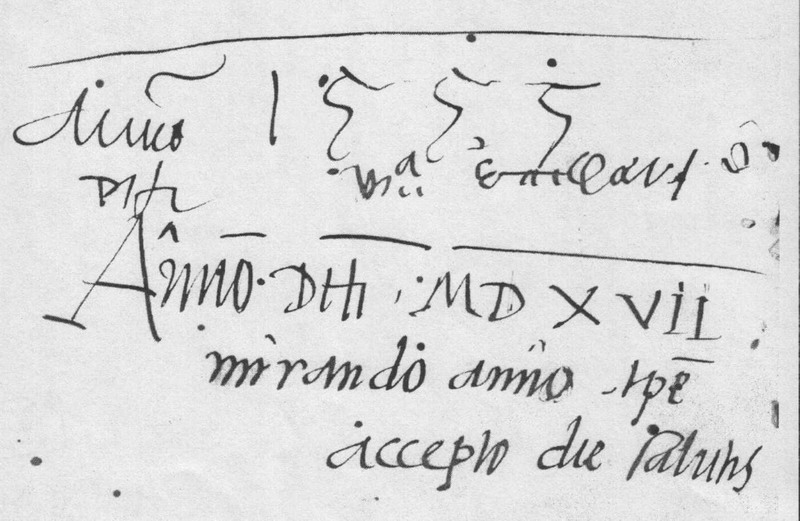 Anno 1555
Dni
Anno · Dni · MDXVII
mirando anno tpe
accepto die salutis